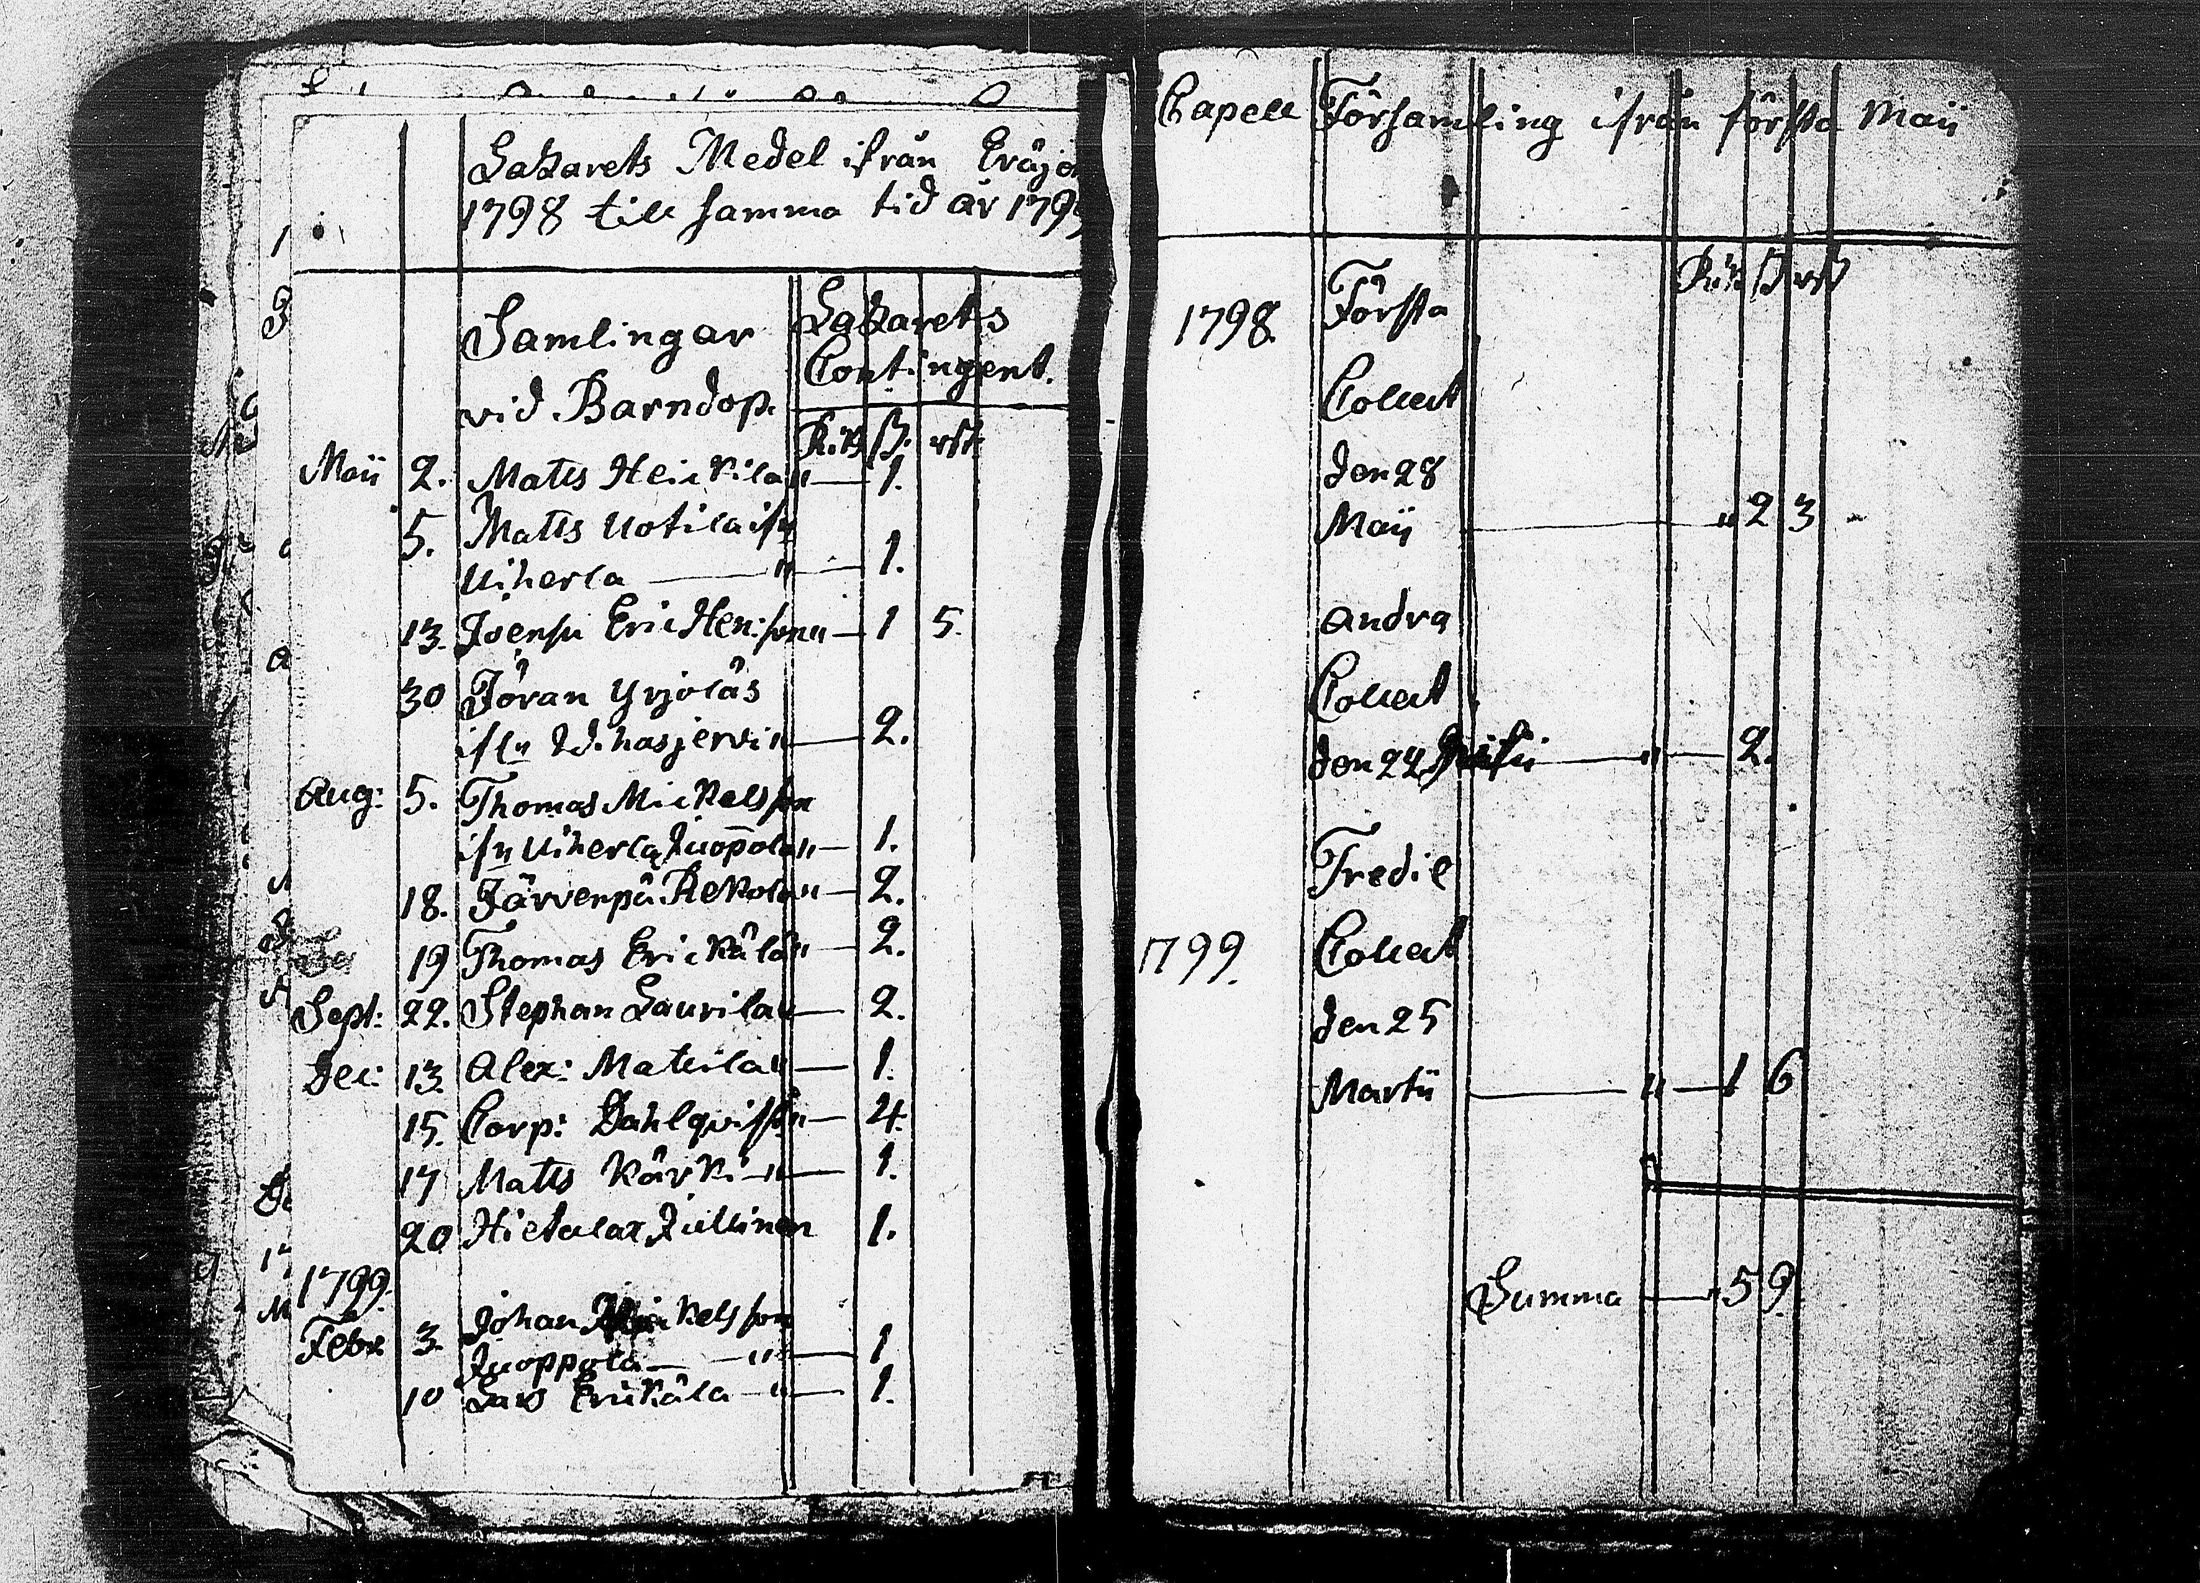 Lazarets Medel ifrån Eräjer
1798 till samma tid år 1799
Samlingar
vid Barndop.
Lazarets
Contingent.
R:ds ß. rst
Maii 2. Matts Heickila " — 1.
5. Matts Uotila ifn
Uiherla — " — 1.
13. Joensu Eric Hen:son " — 1 5.
30 Jöran Yrjolas
ifn — 2.
Aug: 5. Thomas Mickelsson
ifn Uiherla Juopola " — 1.
18. Järvenpä Rekola " — 2.
19 Thomas Erickälä " — 2.
Sept: 22. Stephan Laurila " — 2.
Dec: 13. Alex: Matuila " — 1.
15. Corp: Dahlqvist " — 4.
17 Matts Kärki — " — 1.
20 Hietalax Jullinen 1.
1799.
Febr 3. Johan Mickelsson
Juoppola — " — 1
10 Lars Erickäla — " — 1.
Capell Församling ifrån första Maii
R:ds ß rst
1798. Första
Collect
den 28
Maii — " 2 3
Andra
Collect
den 22 — " — 2.
Tredie
1799. Collect
den 25
Martii — " — 1 6
Summa — " 5 9.